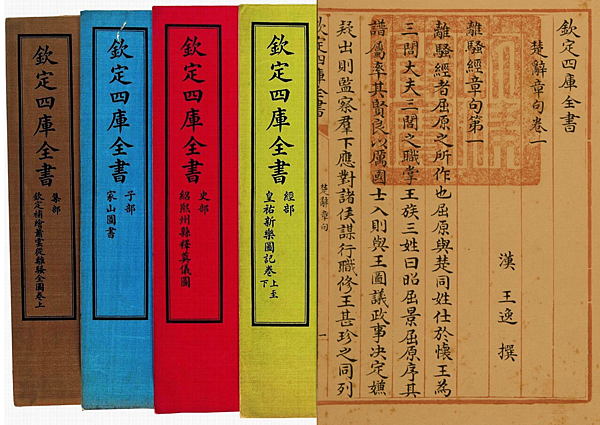 欽定四庫全書
楚辭章句卷一
漢 王逸 撰
離騷經章句第一
離騷經者屈原之所作也屈原與楚同姓仕於懷王為
三閭大夫三閭之職掌王族三姓曰昭屈景屈原序其
譜屬率其賢良以厲國士入則與王圖議政事決定嫌
疑出則監察羣下應對諸侯謀行職修王甚珍之同列
欽定四庫全書
楚辭章句
一
欽定四庫全書
經部
皇祐新樂圖記卷上至下
欽定四庫全書
史部
紹熙州縣釋奠儀圖
欽定四庫全書
子部
家山圖書
欽定四庫全書
集部
欽定補繪蕭雲從離騷全圖卷上